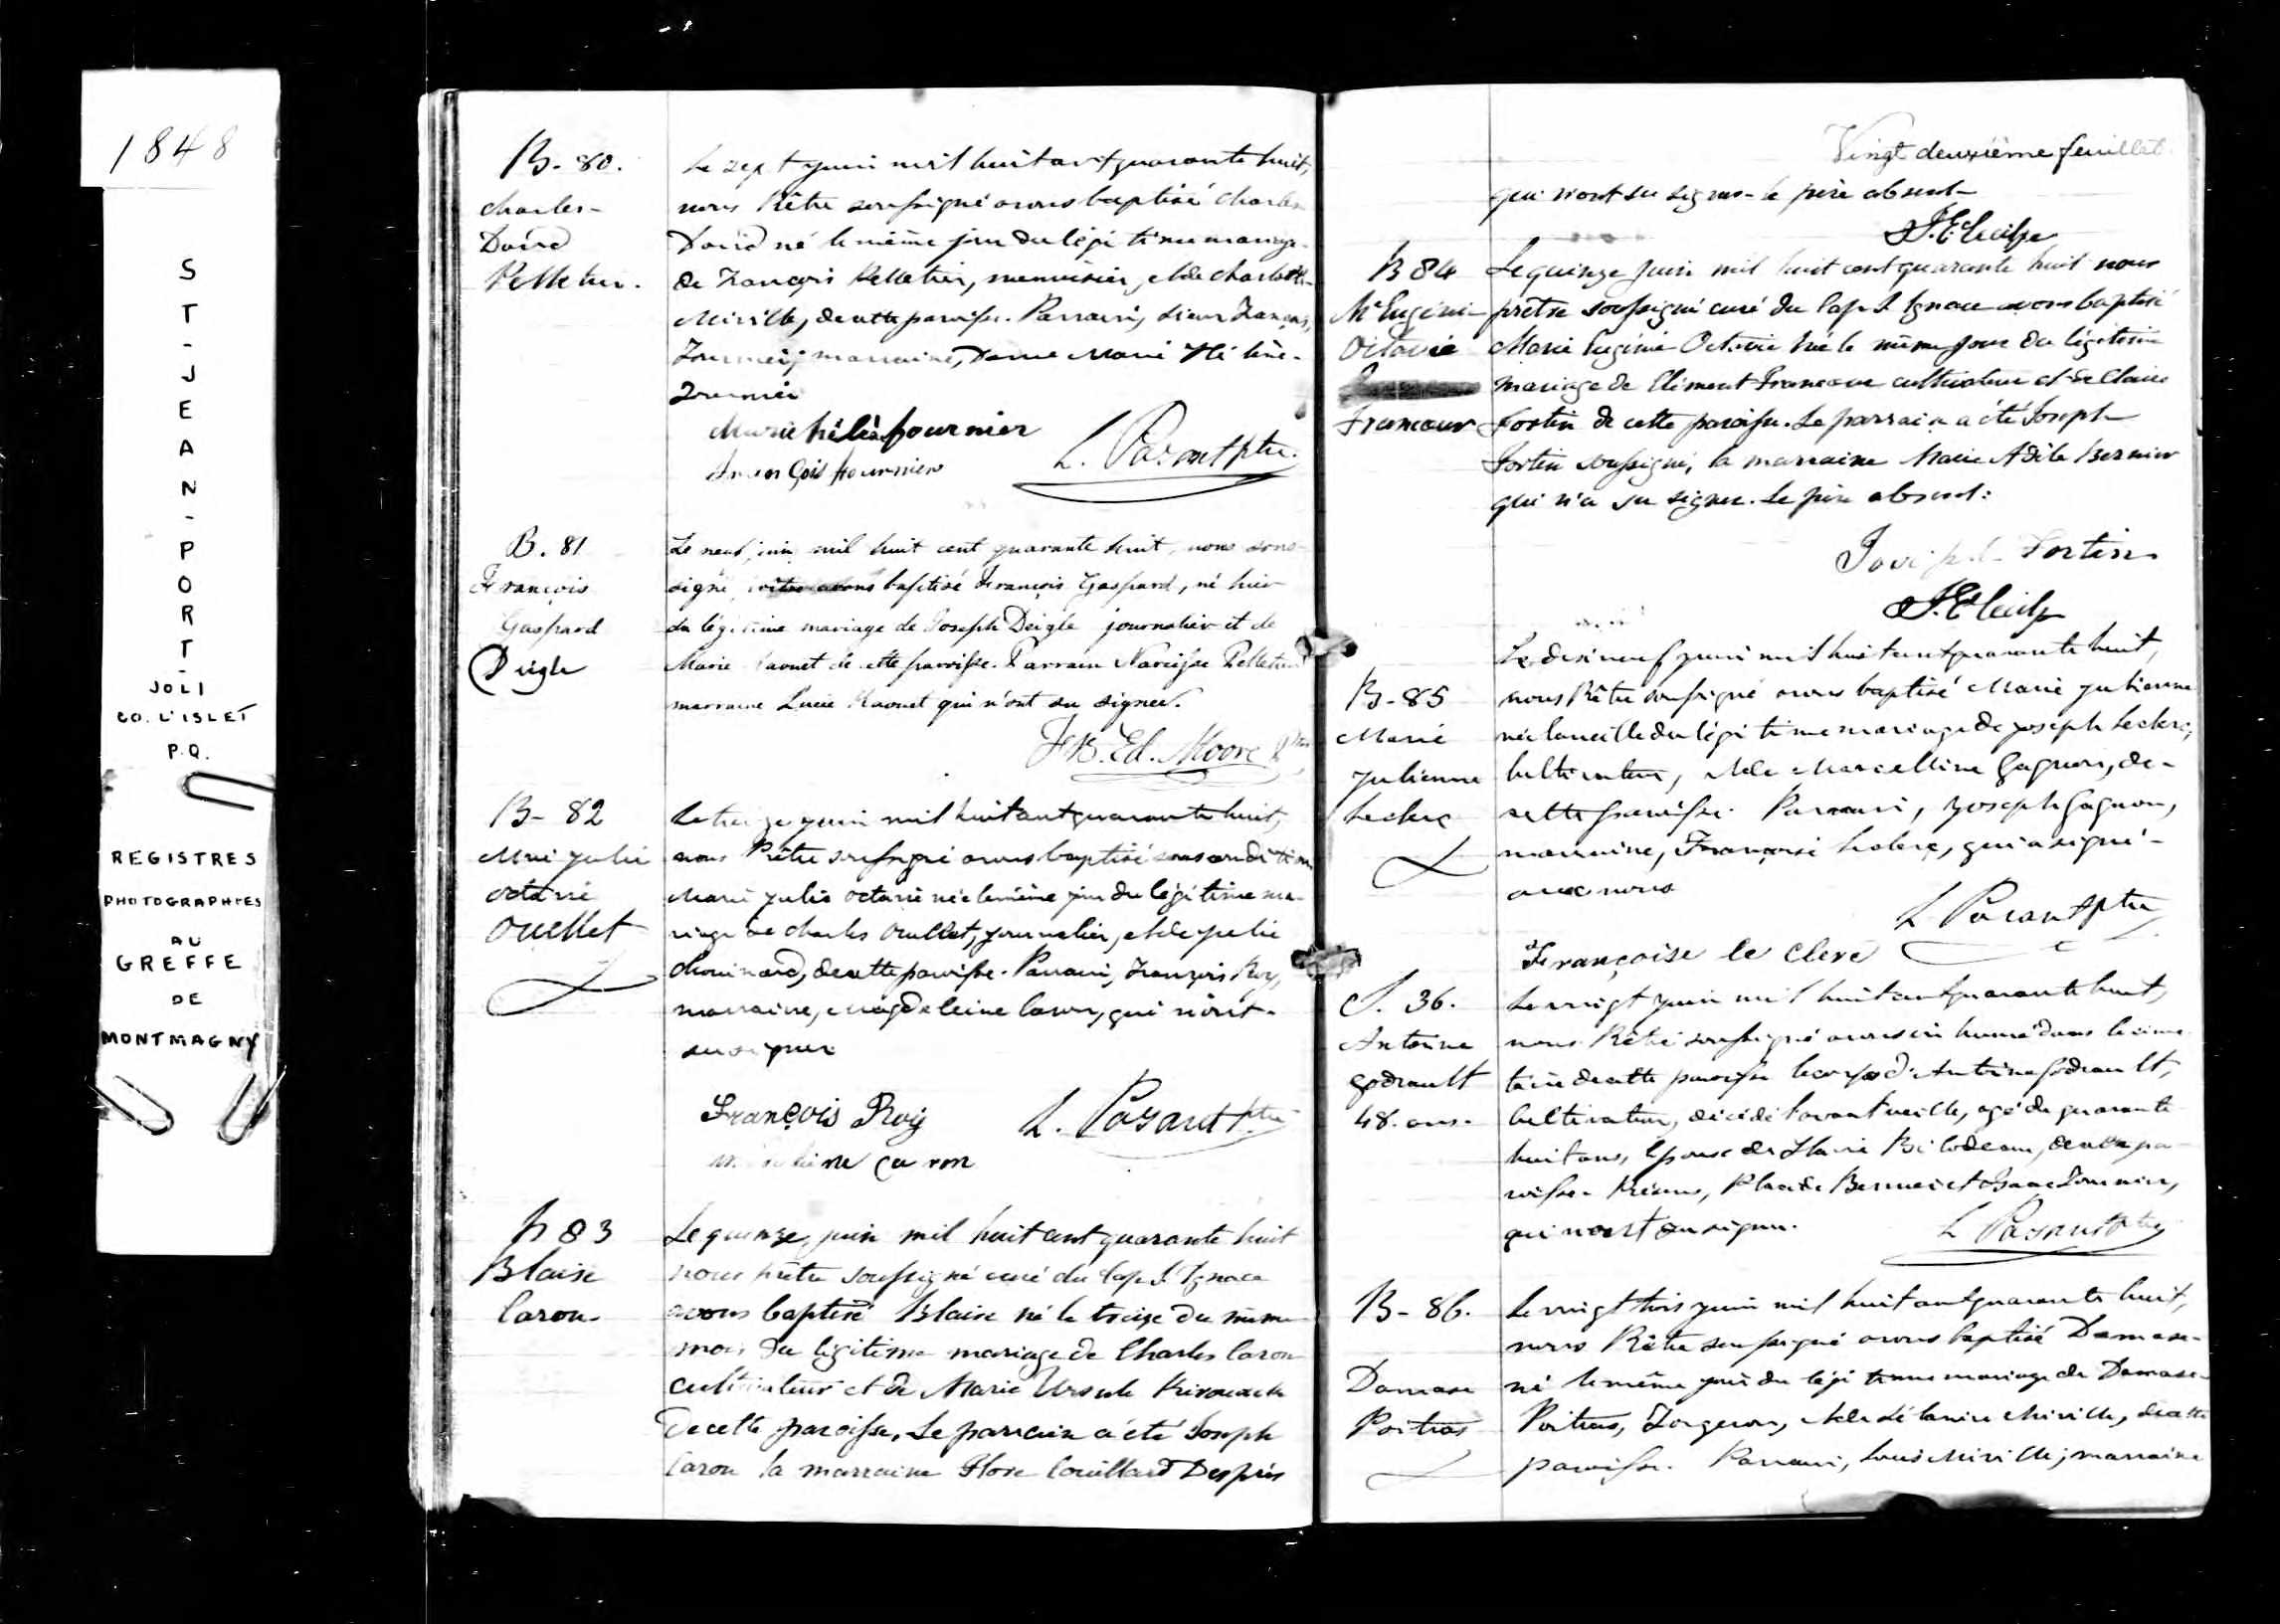 1848
ST-JEAN-PORT-
JOLI
CO. L'ISLET
P.Q.
REGISTRES
PHOTOGRAPHIES
AU
GREFFE
DE
MONTMAGNY
B-80.
Charles-
David
Pelletier.
Le sept juin mil huit cent quarante huit,
nous Prêtre soussigné avons baptisé Charles
David né le même jour du légitime mariage
de François Pelletier, menuisier, et de Charlotte
Miville, de cette paroisse. Parrain, sieur François
Fournier, marraine, Dame Marie Hélène
Fournier
Marie hélène fournier
François fournier
L. Parant ptre.
B. 81
François
Gaspard
Deigle
Le neuf juin mil huit cent quarante huit, nous sous-
signé prêtre avons baptisé François Gaspard, né hier
du légitime mariage de Joseph Deigle journalier et de
Marie de cette paroisse. Parrain Narcisse Pelletier
marraine Lucie qui n'ont su signer.
Ed. Moore Ptre
B- 82
Mrie Julie
octavie
Ouellet
Le treize juin mil huit cent quarante huit,
nous Prêtre soussigné avons baptisé sous condition
Marie Julie octavie née le même jour du légitime ma-
riage de Charles Ouellet, journalier, et de Julie
Chouinard, de cette paroisse. Parrain, François Roy,
marraine, Magdeleine Caron, qui n'ont
su signer
François Roy
caron
L. Parant Ptre
B 83
Blaise
Caron
Le quinze juin mil huit cent quarante huit
nous prêtre soussigné curé du Cap S. Ignace
avons baptisé Blaise né le treize du même
mois du légitime mariage de Charles Caron
cultivateur et de Marie Ursule Kirouack
de cette paroisse. Le parrain a été Joseph
Caron la marraine Flore Couillard Després
Vingt deuxième feuillet
qui n'ont su signer - le père absent-
B 84
Me Eugénie
Octavie
Francoeur
Le quinze juin mil huit cent quarante huit nous
prêtre soussigné curé du Cap S Ignace avons baptisé
Marie Eugénie Octavie née le même jour du légitime
mariage de Clément Francoeur cultivateur et de Claire
Fortin de cette paroisse. Le parrain a été Joseph
Fortin soussigné, la marraine Marie Adèle Bernier
qui n'a su signer. Le père absent:
Joseph Fortin
B-85
Marie
Julienne
Leclerc
Le dixneuf juin mil huit cent quarante huit,
nous Prêtre soussigné avons baptisé Marie Julienne
née la veille du légitime mariage de Joseph Leclerc,
cultivateur, et de Marcelline Gagnon, de
cette paroisse. Parrain, Joseph Gagnon,
marraine, Françoise Leclerc, qui a signé
avec nous
L Parant ptre
Françoise le clerc
S. 36.
Antoine
godreault
48. ans-
Le vingt juin mil huit cent quarante huit,
nous Prêtre soussigné avons inhumé dans le cime
tière de cette paroisse le corps d'Antoine godreault,
cultivateur, décédé l'avant veille, agé de quarante
huit ans, époux de Marie Bilodeau, de cette pa-
roisse. Présens, Placide Bernier et Isaac Fournier,
qui n'ont su signer.
L Parant Ptre
B-86.
Damase
Poitras
Le vingt trois juin mil huit cent quarante huit,
nous Prêtre soussigné avons baptisé Damase-
né le même jour du légitime mariage de Damase-
Poitras, Forgeron, et de Miville, de cette
paroisse. Parrain, Louis Miville; marraine